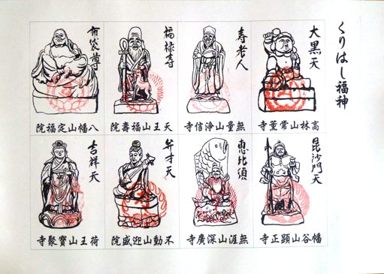 くりはし福神
大黒天
高林山常薫寺
寿老人
無量山淨信寺
福禄寿
天王山福壽院
布袋尊
八幡山定福院
毘沙門天
幡谷山顯正寺
恵比須
無涯山深廣寺
弁才天
不動山迎盛院
吉祥天
荷王山寶聚寺